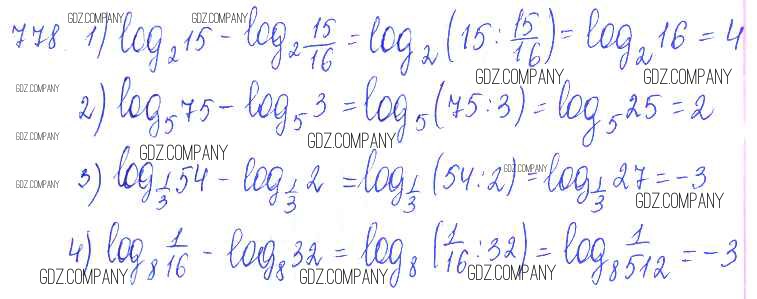 778. 1) log₂15 - log₂ 15/16 = log₂ (15 : 15/16) = log₂16 = 4
2) log₅75 - log₅3 = log₅(75:3) = log₅25 = 2
3) log_1/3 54 - log_1/3 2 = log_1/3 (54:2) = log_1/3 27 = -3
4) log₈ 1/16 - log₈32 = log₈ (1/16 : 32) = log₈ 1/512 = -3
GDZ.COMPANY GDZ.COMPANY
GDZ.COMPANY GDZ.COMPANY
GDZ.COMPANY
GDZ.COMPANY GDZ.COMPANY
GDZ.COMPANY
GDZ.COMPANY GDZ.COMPANY
GDZ.COMPANY
GDZ.COMPANY GDZ.COMPANY GDZ.COMPANY